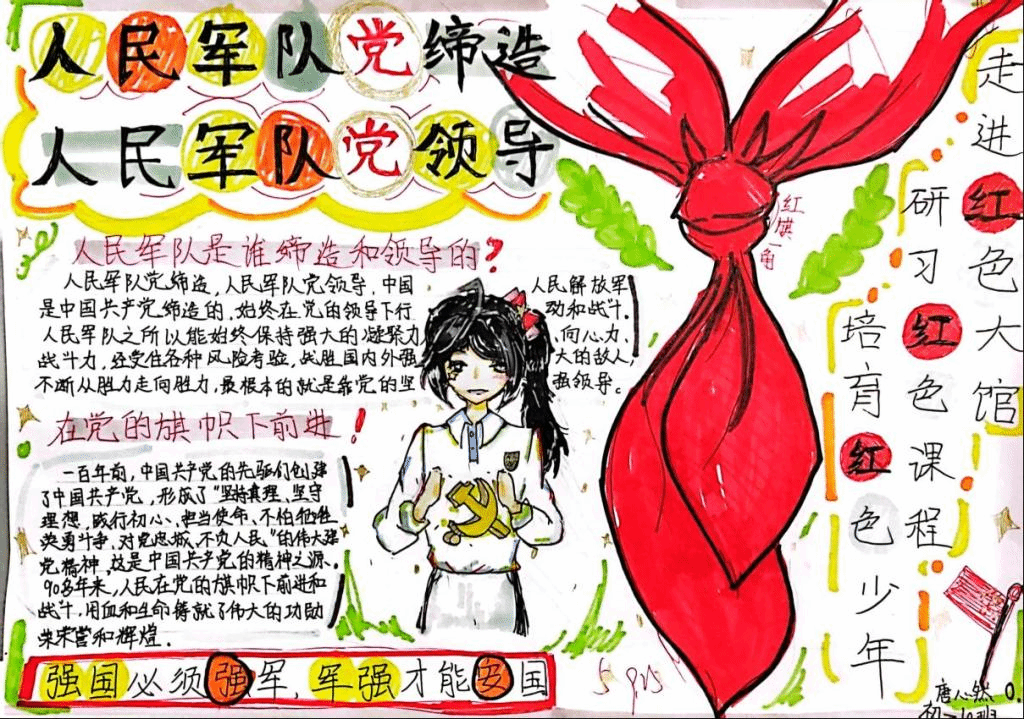 人民军队党缔造
人民军队党领导
人民军队是谁缔造和领导的?
人民军队党缔造，人民军队党领导，中国人民解放军
是中国共产党缔造的，始终在党的领导下行动和战斗.
人民军队之所以能始终保持强大的凝聚力、向心力、
战斗力，经受住各种风险考验，战胜国内外强大的敌人，
不断从胜力走向胜力，最根本的就是靠党的坚强领导。
在党的旗帜下前进!
一百年前，中国共产党的先驱们创建
了中国共产党，形成了“坚持真理、坚守
理想、践行初心、担当使命、不怕牺牲
英勇斗争，对党忠诚，不负人民，”的伟大建
党精神，这是中国共产党的精神之源。
90多年来，人民在党的旗帜下前进和
战斗，用血和生命铸就了伟大的功勋
荣誉和辉煌.
强国必须强军，军强才能安国
红旗一角
走进红色大馆
研习红色课程
培育红色少年
唐心然
初一10班